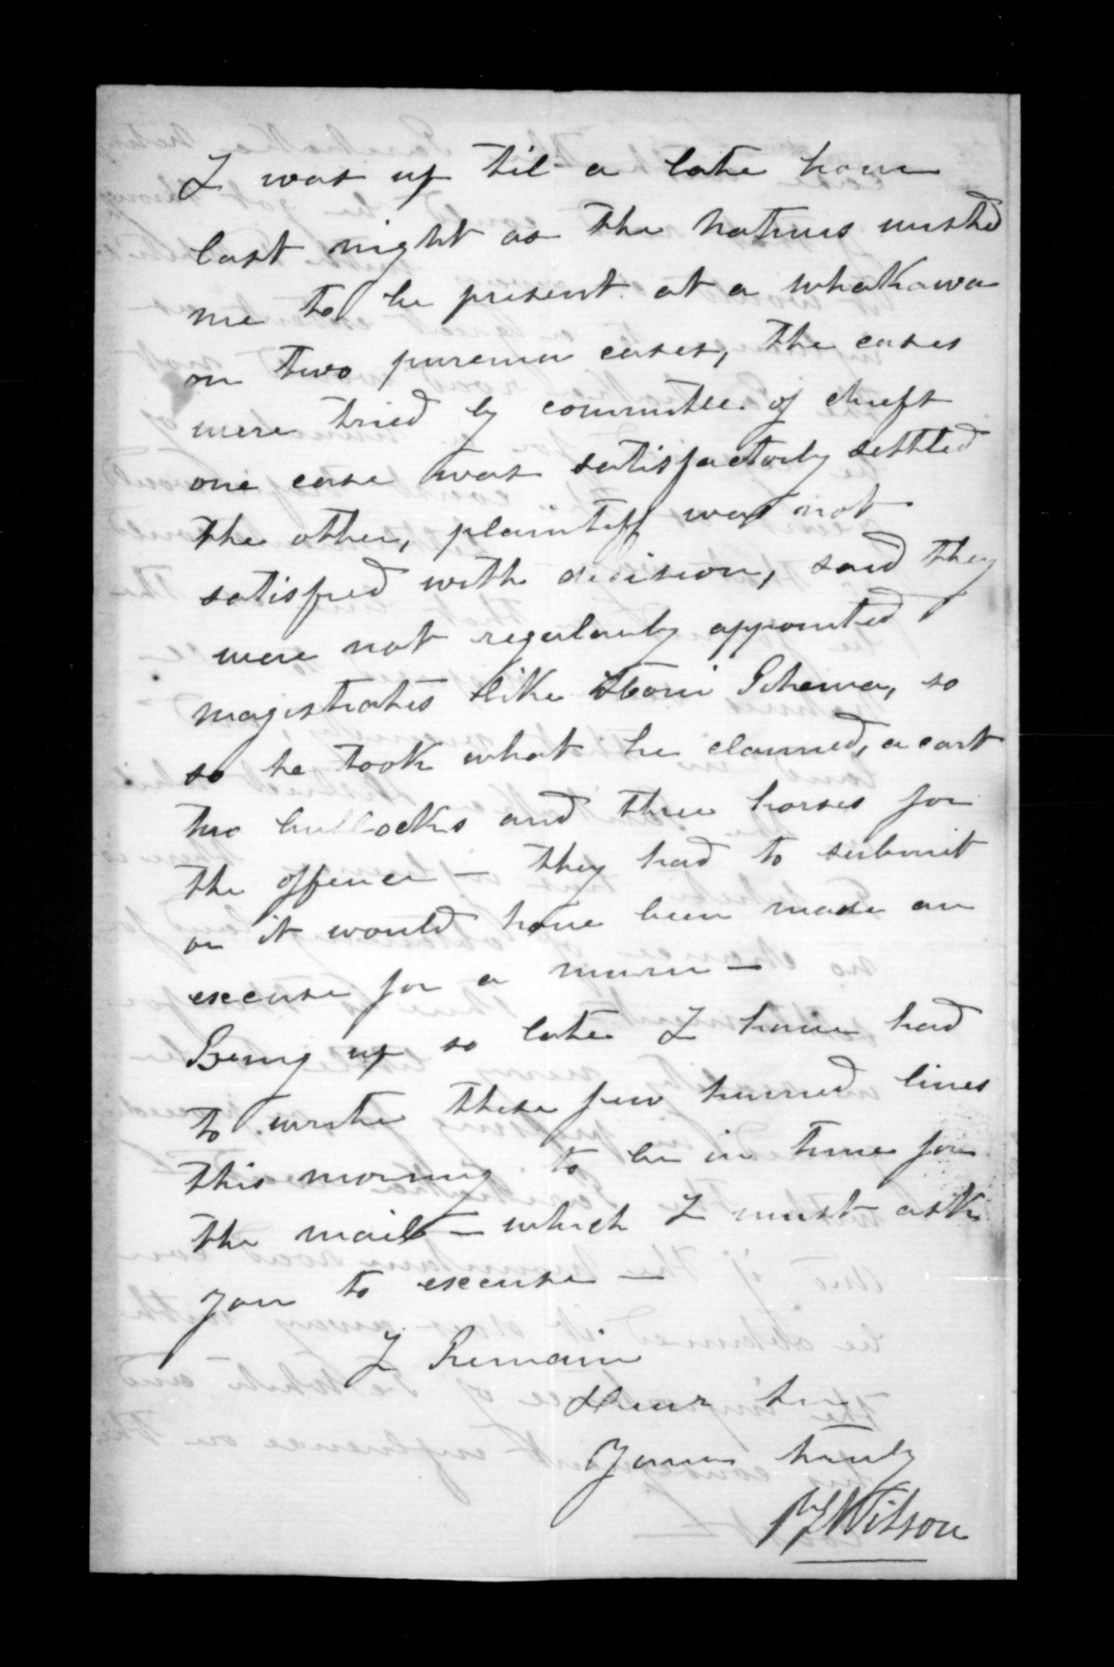 I was up til a late hour
last night as the natives wished
me to be present at a whakawa
on two puremu cases, the cases
were tried by committee of chiefs
one case was satisfactorly settled
the other, plaintiff was not
satisfied with decision, said they
were not regularly appointed
magistrates like so
so he took what he claimed, a cart
two bullocks and three horses for
the offence — they had to submit
or it would have been made an
excuse for a muru —
Being up so late I have had
to write these few hurried lines
this morning to be in time for
the mail — which I must ask
you to excuse —
I Remain
Dear Sir
Yours truly
Wilson